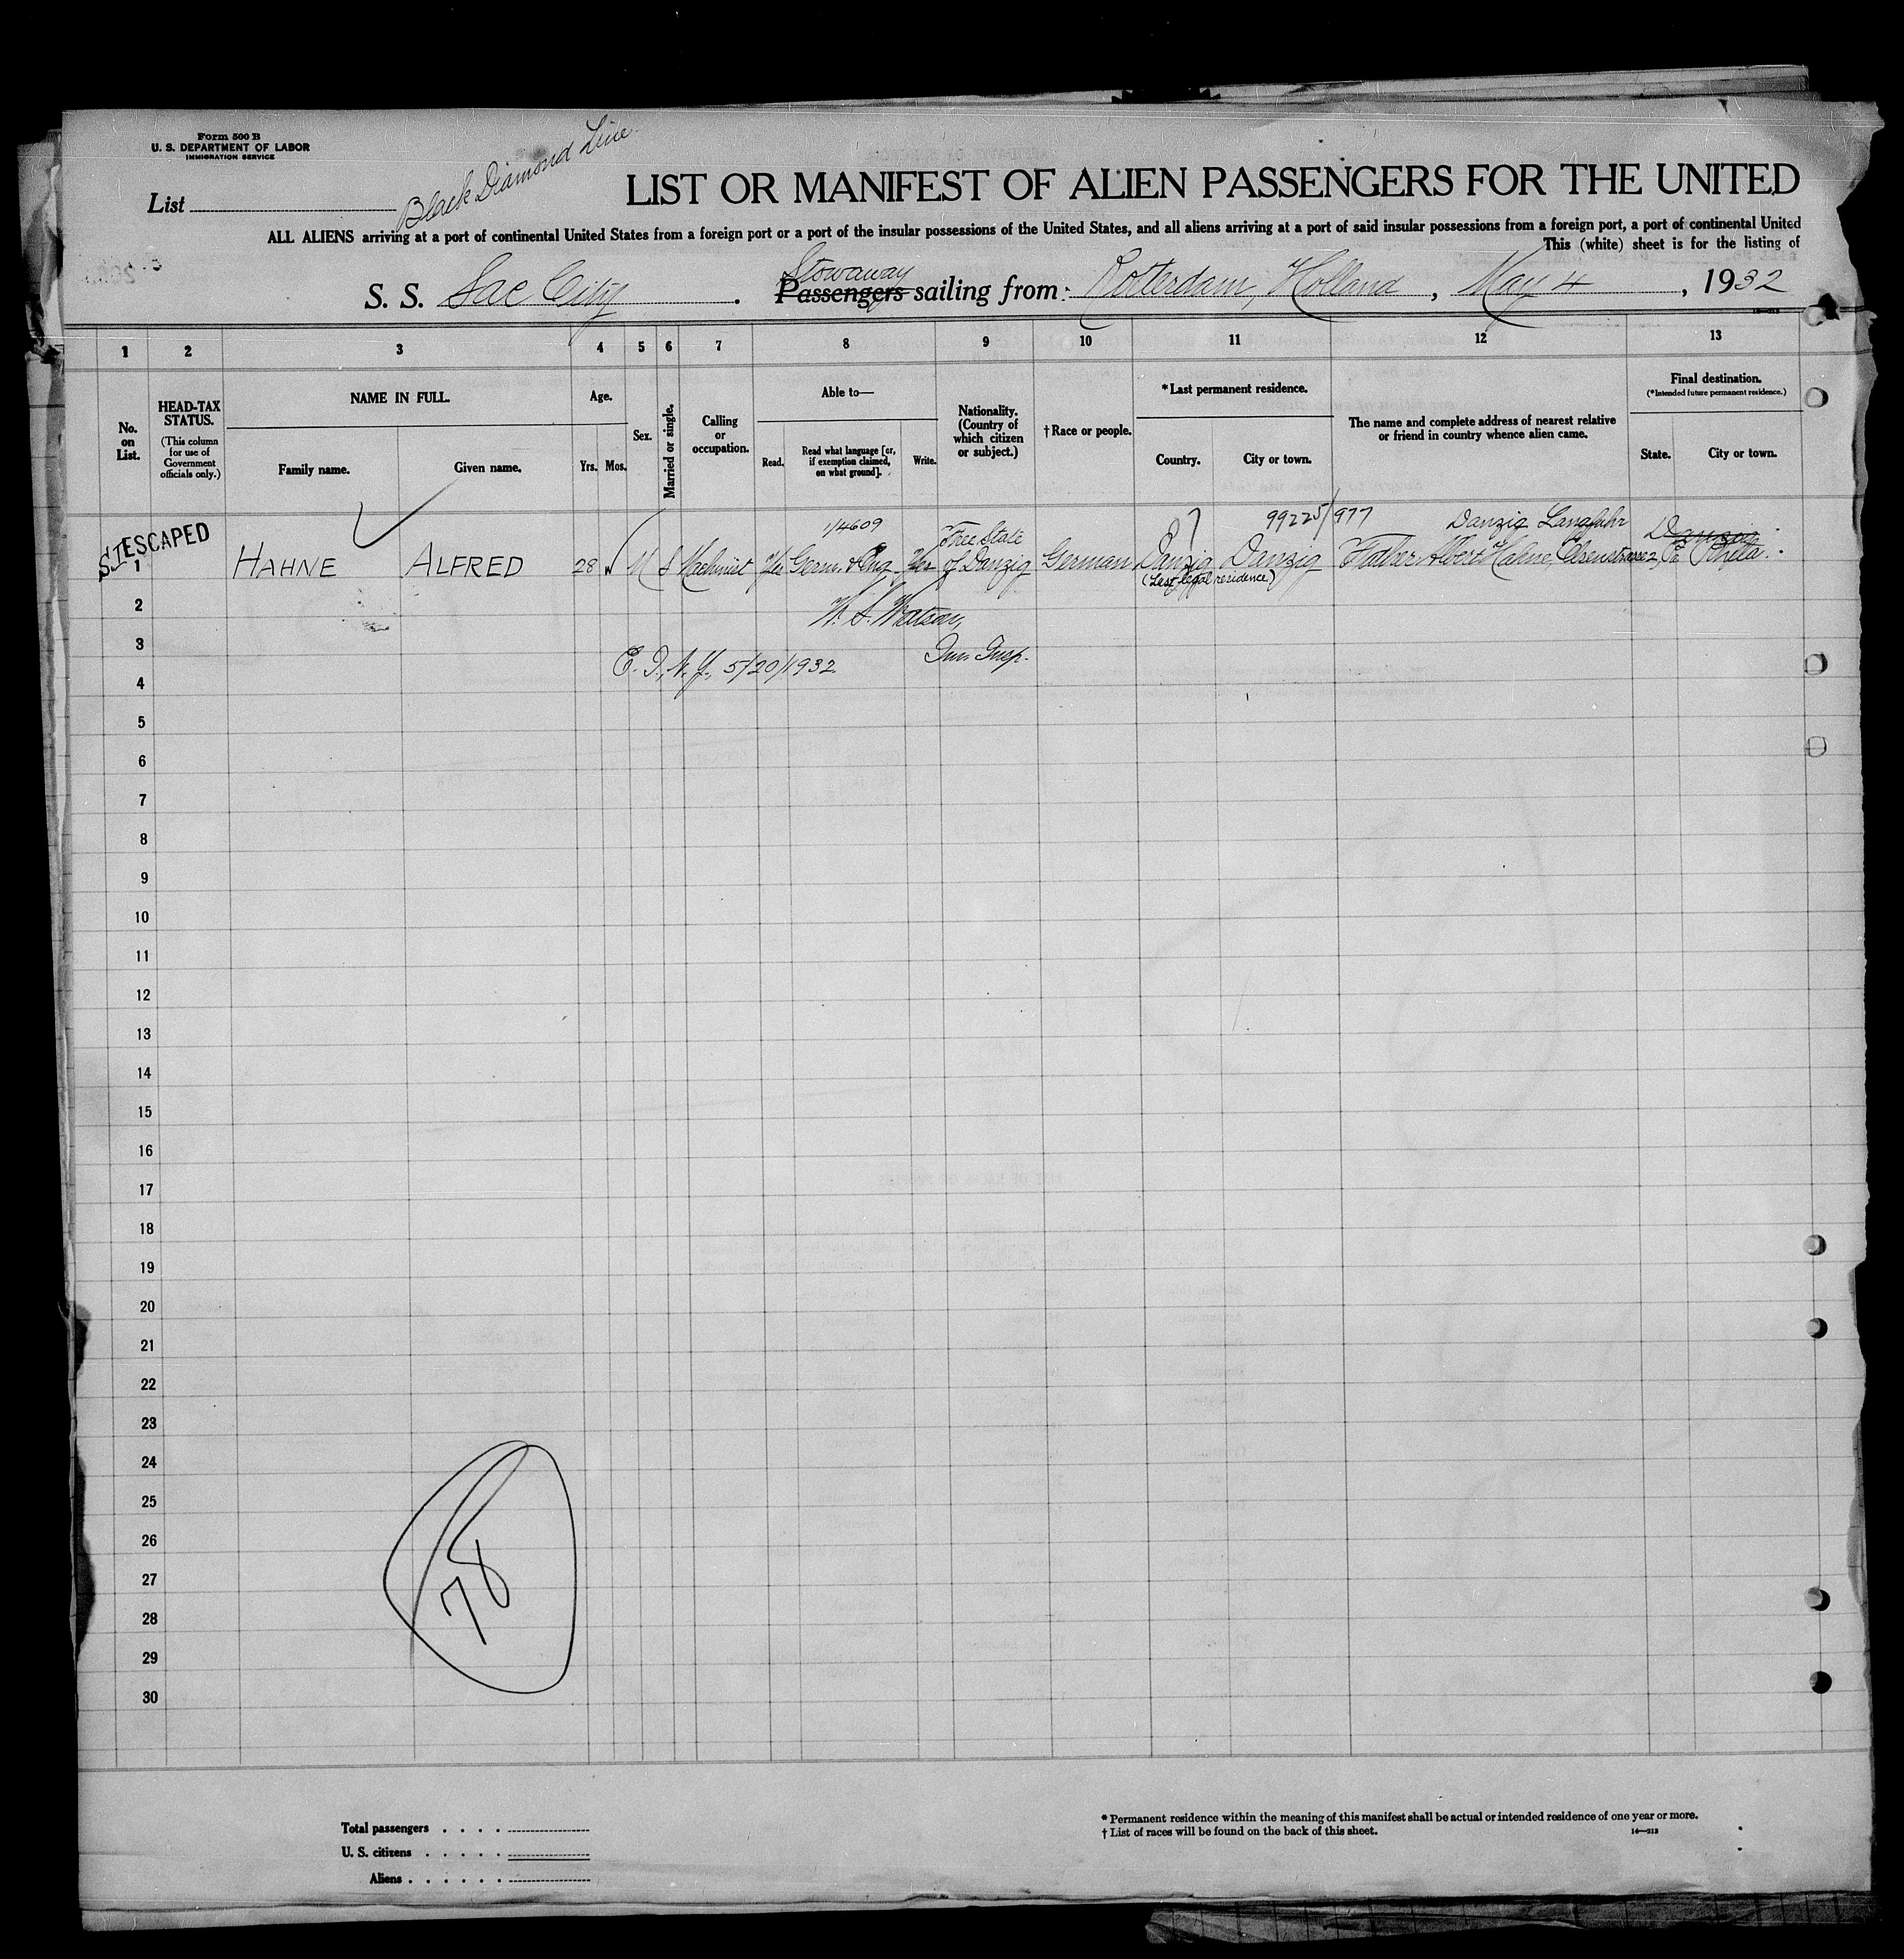 Form 500 B
U. S. DEPARTMENT OF LABOR
IMMIGRATION SERVICE
List
Black Diamond Line
LIST OR MANIFEST OF ALIEN PASSENGERS FOR THE UNITED
ALL ALIENS arriving at a port of continental United States from a foreign port or a port of the insular possessions of the United States, and all aliens arriving at a port of said insular possessions from a foreign port, a port of continental United
This (white) sheet is for the listing of
Stowaway
S. S. Sac City. Passengers sailing from: Rotterdam, Holland, May 4, 1932
1 2 3 4 5 6 7 8 9 10 11 12 13
No. on List.
HEAD-TAX STATUS.
(This column for use of Government officials only.)
NAME IN FULL.
Family name. Given name.
Age.
Yrs. Mos.
Sex.
Married or single.
Calling or occupation.
Able to—
Read. Read what language [or, if exemption claimed, on what ground]. Write.
Nationality. (Country of which citizen or subject.)
†Race or people.
*Last permanent residence.
Country. City or town.
The name and complete address of nearest relative or friend in country whence alien came.
Final destination.
(*Intended future permanent residence.)
State. City or town.
1/4609 99225/977 Danzig Langfuhr Danzig
ESCAPED
Free State
1 HAHNE ALFRED 28 M S Machinist Yes Germ. & Eng. Yes of Danzig German Danzig Danzig Father Albert Hahne, Elsenstrasse 2, Pa Phila.
(Last legal residence)
2
W. S. Watson,
3
Imm Insp.
E. I., N. Y., 5/20/1932
4
5
6
7
8
9
10
11
12
13
14
15
16
17
18
19
20
21
22
23
24
25
26
27
28
29
30
78
Total passengers . . . .
U. S. citizens . . . . .
Aliens . . . . . .
* Permanent residence within the meaning of this manifest shall be actual or intended residence of one year or more.
† List of races will be found on the back of this sheet.
14—213